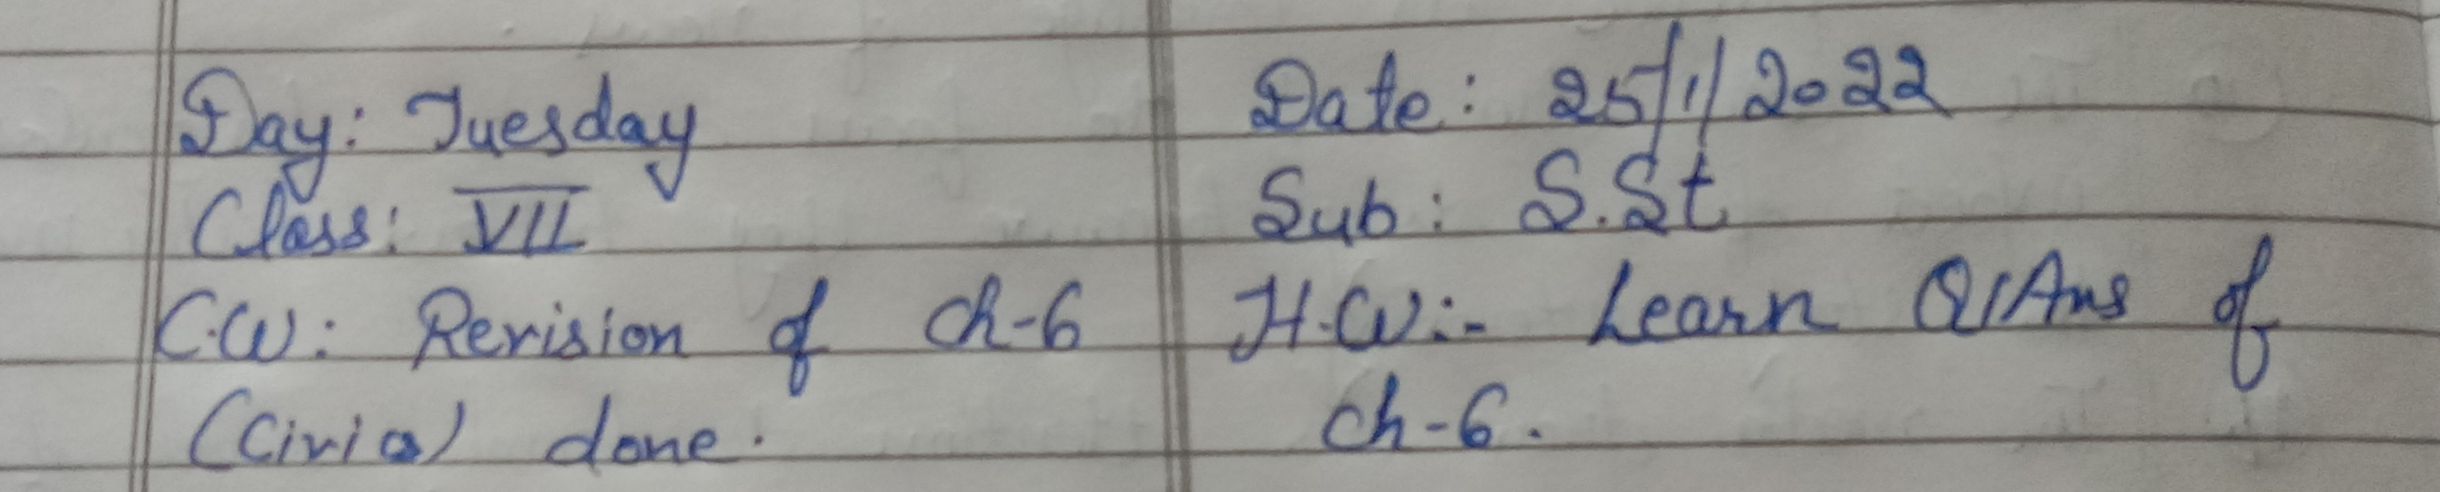 Day: Tuesday
Class: VII
C.W: Revision of ch-6
(Civics) done.
Date: 25/1/2022
Sub: S.St
H.W:- Learn Q/Ans of
ch-6.